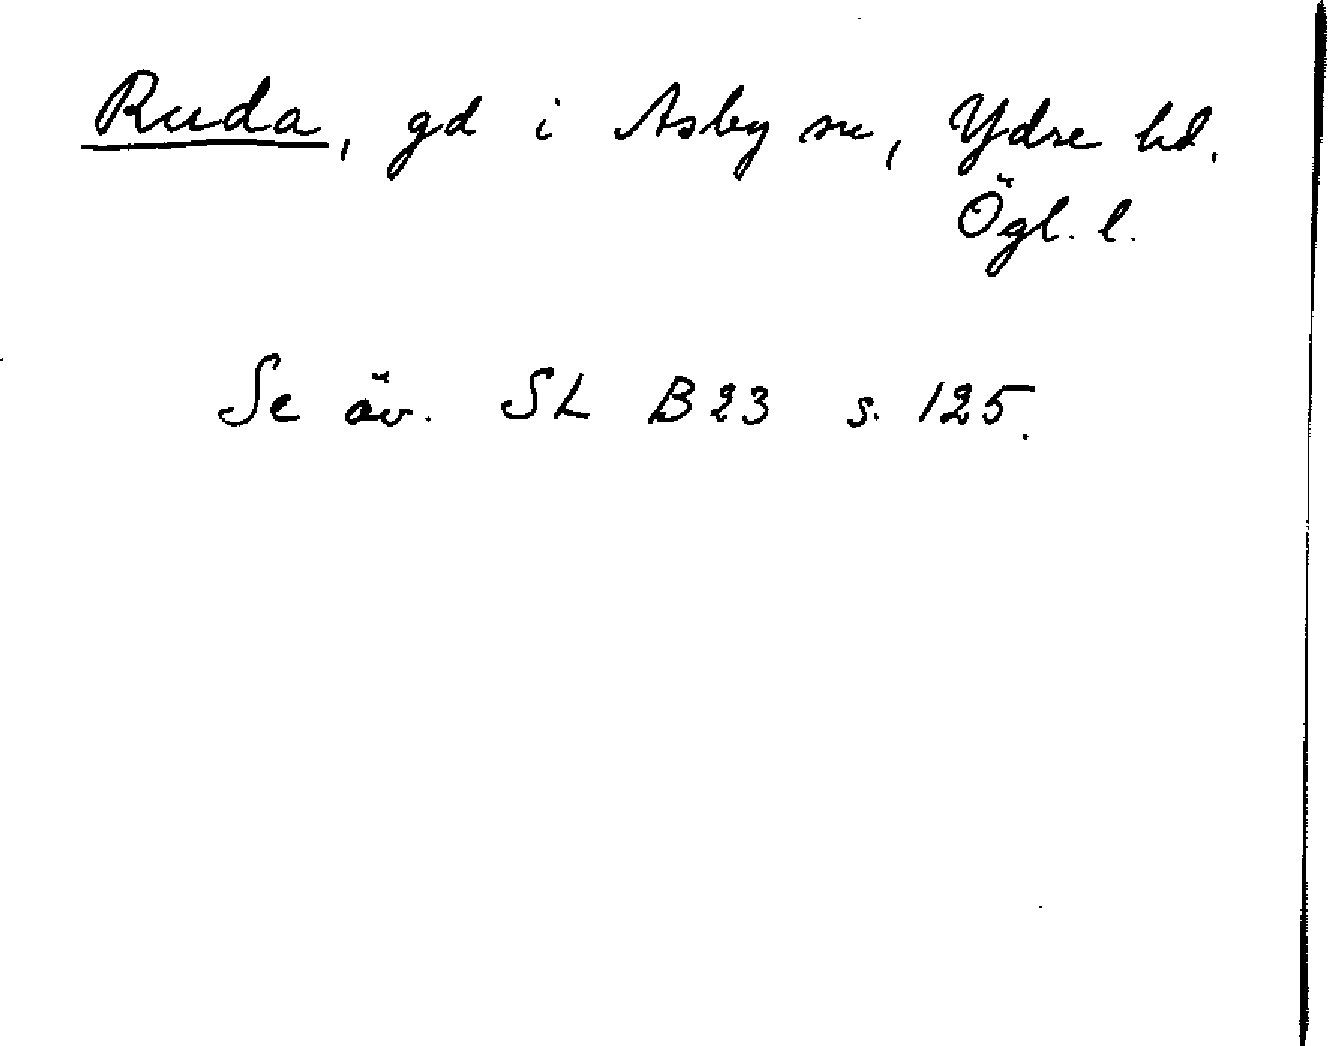 Ruda, gd i Asby sn, Ydre hd.
Ögl. l.
Se äv. SL B 23 s. 125.